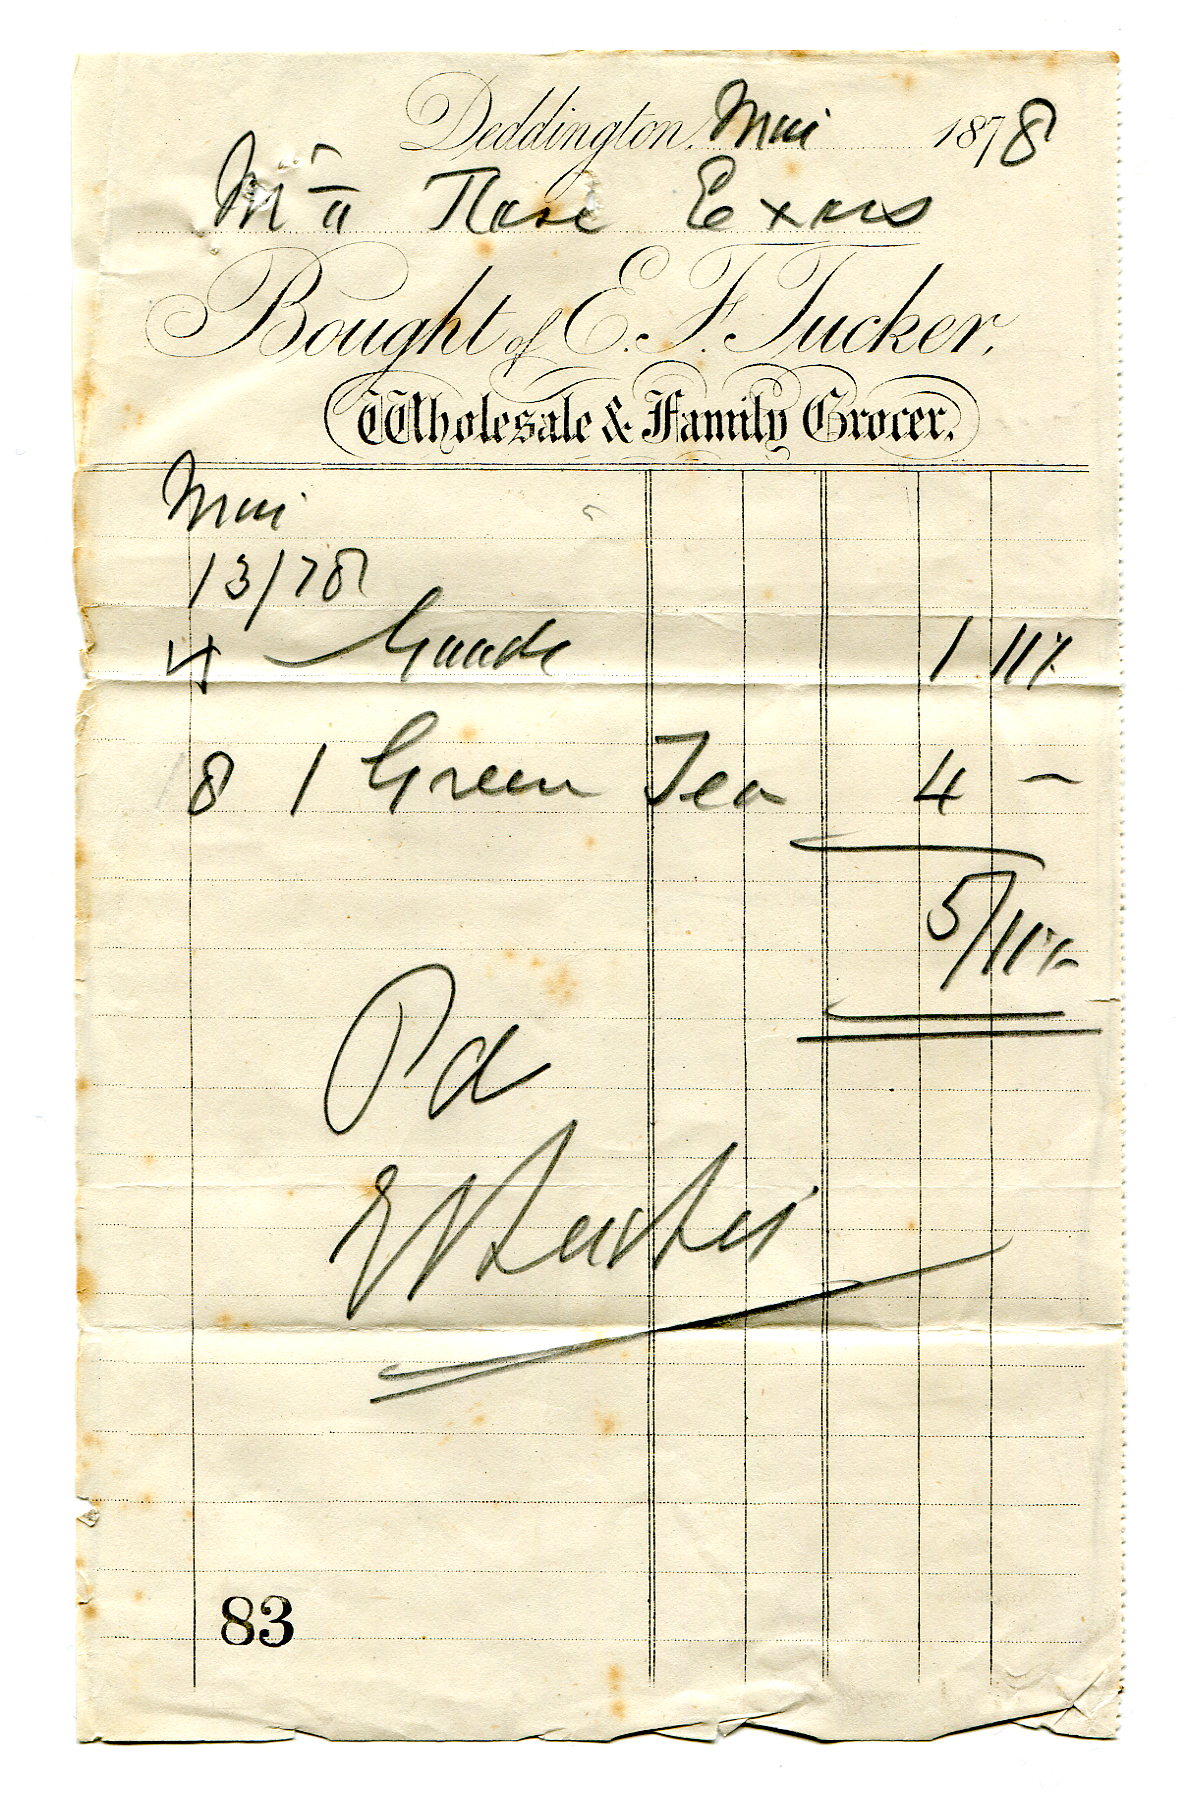 Deddington, 1878
Bought of E. F. Tucker,
Wholesale & Family Grocer.
13/78
4 Goods 1 11½
8 1 Green Tea 4 –
5/11½
Pd
83